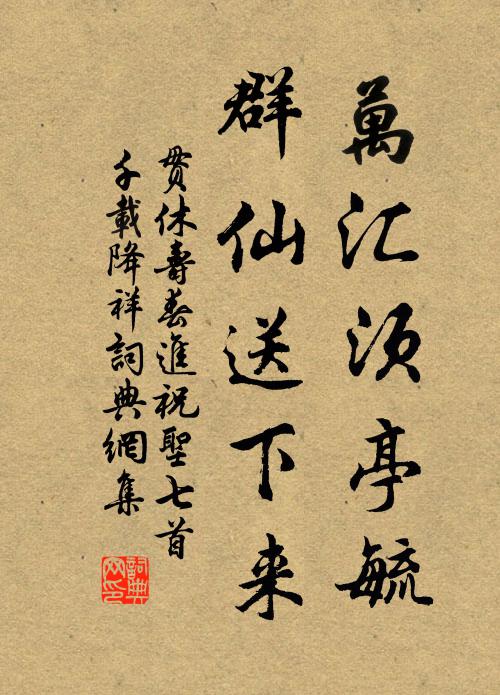 萬汇须亭毓
群仙送下来
贯休壽春進祝聖七首
千載降祥詞典網集
詞典
网印